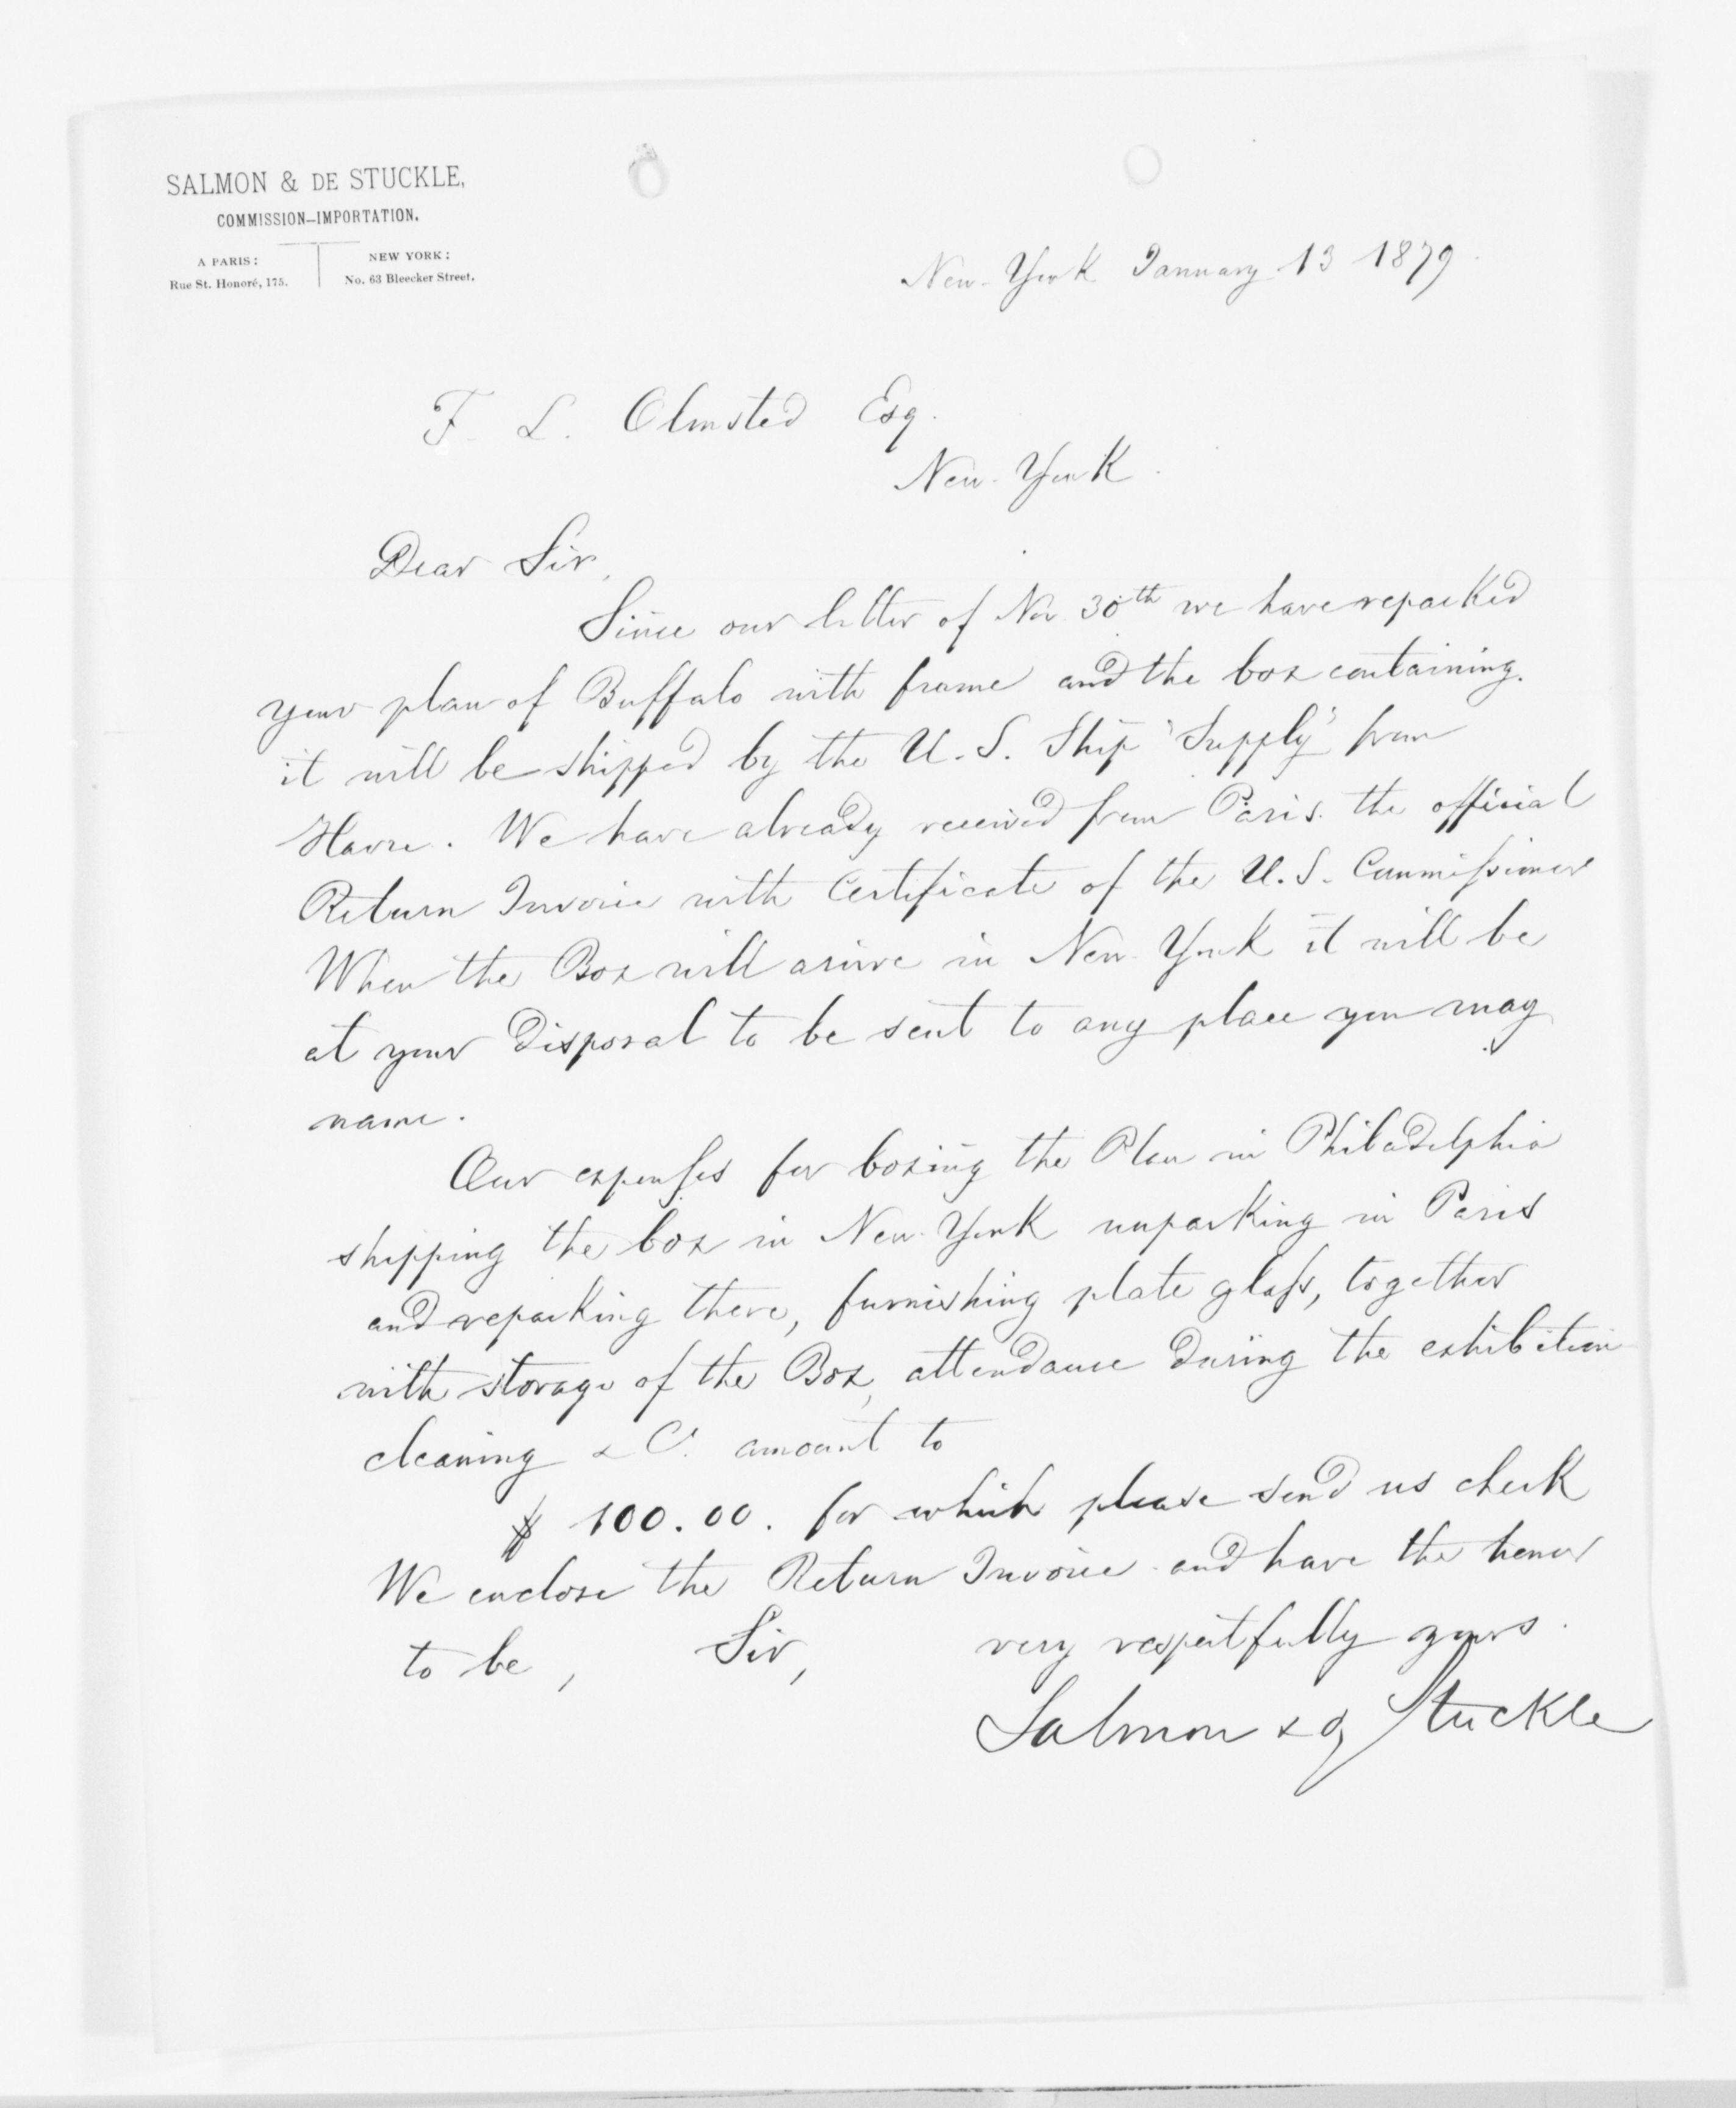 SALMON & DE STUCKLE,
COMMISSION–IMPORTATION.
A PARIS:
Rue St. Honoré, 175.
NEW YORK:
No. 63 Bleecker Street.
New-York January 13 1879.
F. L. Olmsted Esq.
New-York.
Dear Sir,
Since our letter of Nov 30th we have repacked
your plan of Buffalo with frame and the box containing
it will be shipped by the U.S. Ship "Supply" from
Havre. We have already received from Paris the official
Return Invoice with Certificate of the U.S. Commissioner
When the Box will arrive in New-York it will be
at your disposal to be sent to any place you may
name.
Our expenses for boxing the Plan in Philadelphia
shipping the box in New-York unpacking in Paris
and repacking there, furnishing plate glass, together
with storage of the Box, attendance during the exhibition
cleaning & C. amount to
$ 100.00. for which please send us check
We enclose the Return Invoice and have the honor
to be, Sir, very respectfully yours.
Salmon & D Stuckle